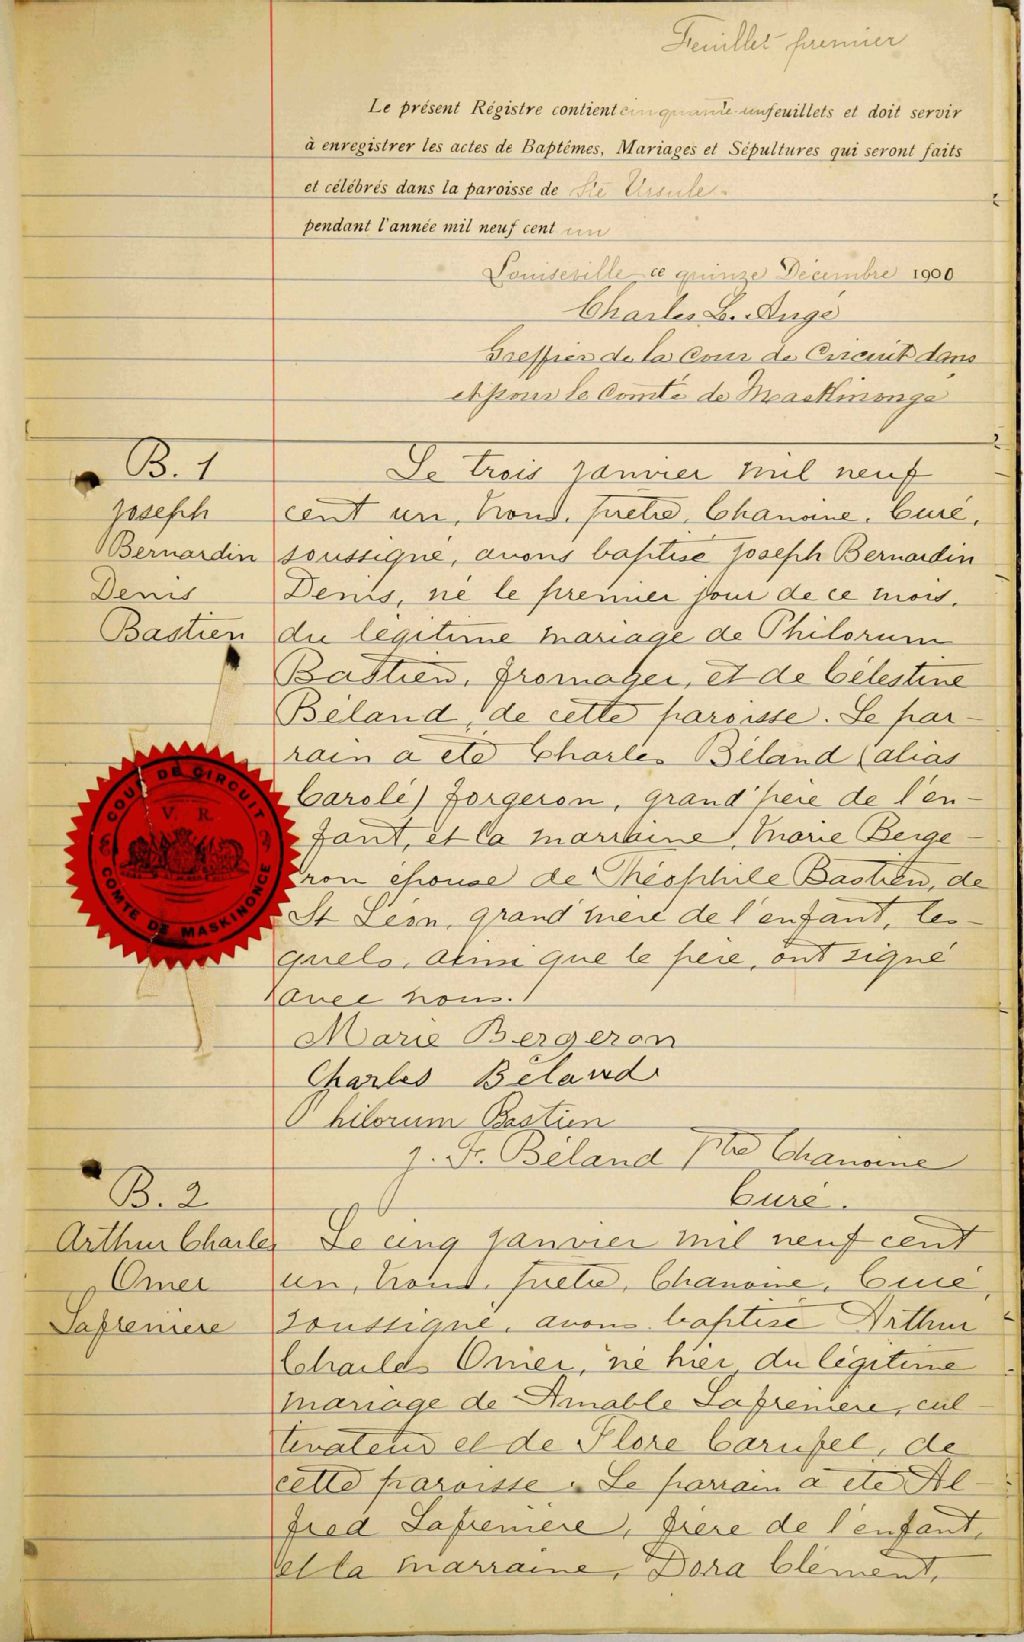 Feuillet premier
Le présent Régistre contient cinquante-un feuillets et doit servir
à enregistrer les actes de Baptêmes, Mariages et Sépultures qui seront faits
et célébrés dans la paroisse de Ste Ursule
pendant l'année mil neuf cent un
Louiseville ce quinze Décembre 1900
Charles L. Augé
Greffier de la Cour de Circuit dans
et pour le Comté de Maskinongé
B. 1
Joseph
Bernardin
Denis
Bastien
Le trois janvier mil neuf
cent un, Nous, prêtre, Chanoine, Curé,
soussigné, avons baptisé Joseph Bernardin
Denis, né le premier jour de ce mois,
du légitime mariage de Philorum
Bastien, fromager, et de Célestine
Béland, de cette paroisse. Le par-
rain a été Charles Béland (alias
Carolé) forgeron, grand'père de l'en-
fant, et la marraine, Marie Berge-
ron épouse de Théophile Bastien, de
St Léon, grand'mère de l'enfant, les-
quels, ainsi que le père, ont signé
avec nous.
COUR DE CIRCUIT
V. R.
COMTE DE MASKINONGE
Marie Bergeron
Charles Béland
Philorum Bastien
J. F. Béland Ptre Chanoine
Curé.
B. 2
Arthur Charles
Omer
Lafrenière
Le cinq janvier mil neuf cent
un, Nous, prêtre, Chanoine, Curé,
soussigné, avons baptisé Arthur
Charles Omer, né hier, du légitime
mariage de Amable Lafrenière, cul-
tivateur et de Flore Carufel, de
cette paroisse. Le parrain a été Al-
fred Lafrenière, frère de l'enfant,
et la marraine, Dora Clément,